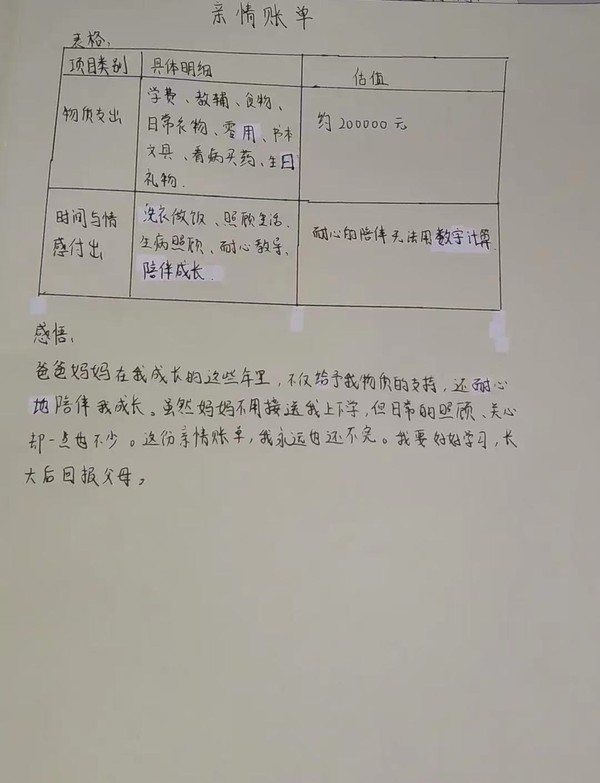 亲情账单
表格:
项目类别 具体明细 估值
物质支出
学费、教辅、食物、
日常衣物、零用、书本
文具、看病买药、生日
礼物.
约200000元
时间与情
感付出
洗衣做饭、照顾生活、
生病照顾、耐心教导、
陪伴成长.
耐心的陪伴无法用数字计算.
感悟:
爸爸妈妈在我成长的这些年里,不仅给予我物质的支持,还耐心
地陪伴我成长。虽然妈妈不用接送我上下学,但日常的照顾、关心
却一点也不少。这份亲情账单,我永远也还不完。我要好好学习,长
大后回报父母,